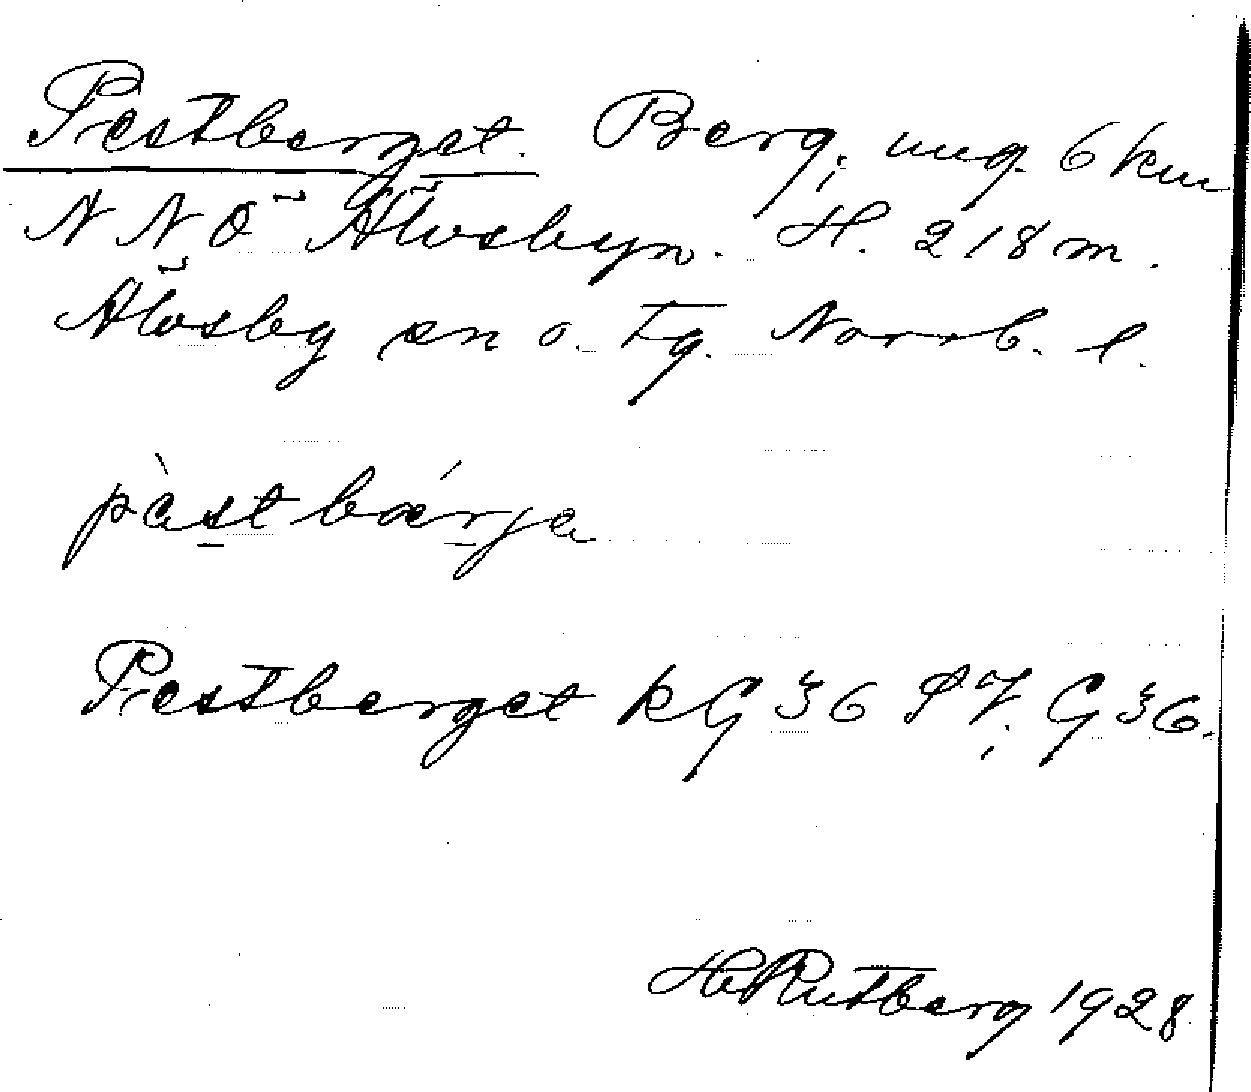 Pestberget. Berg, ung. 6 km
NNÖ Älvsbyn. H. 218 m.
Älvsby sn o. tg. Norrb. l.
pàstbárja
Pestberget kG 36 G 36.
H Rutberg 1928